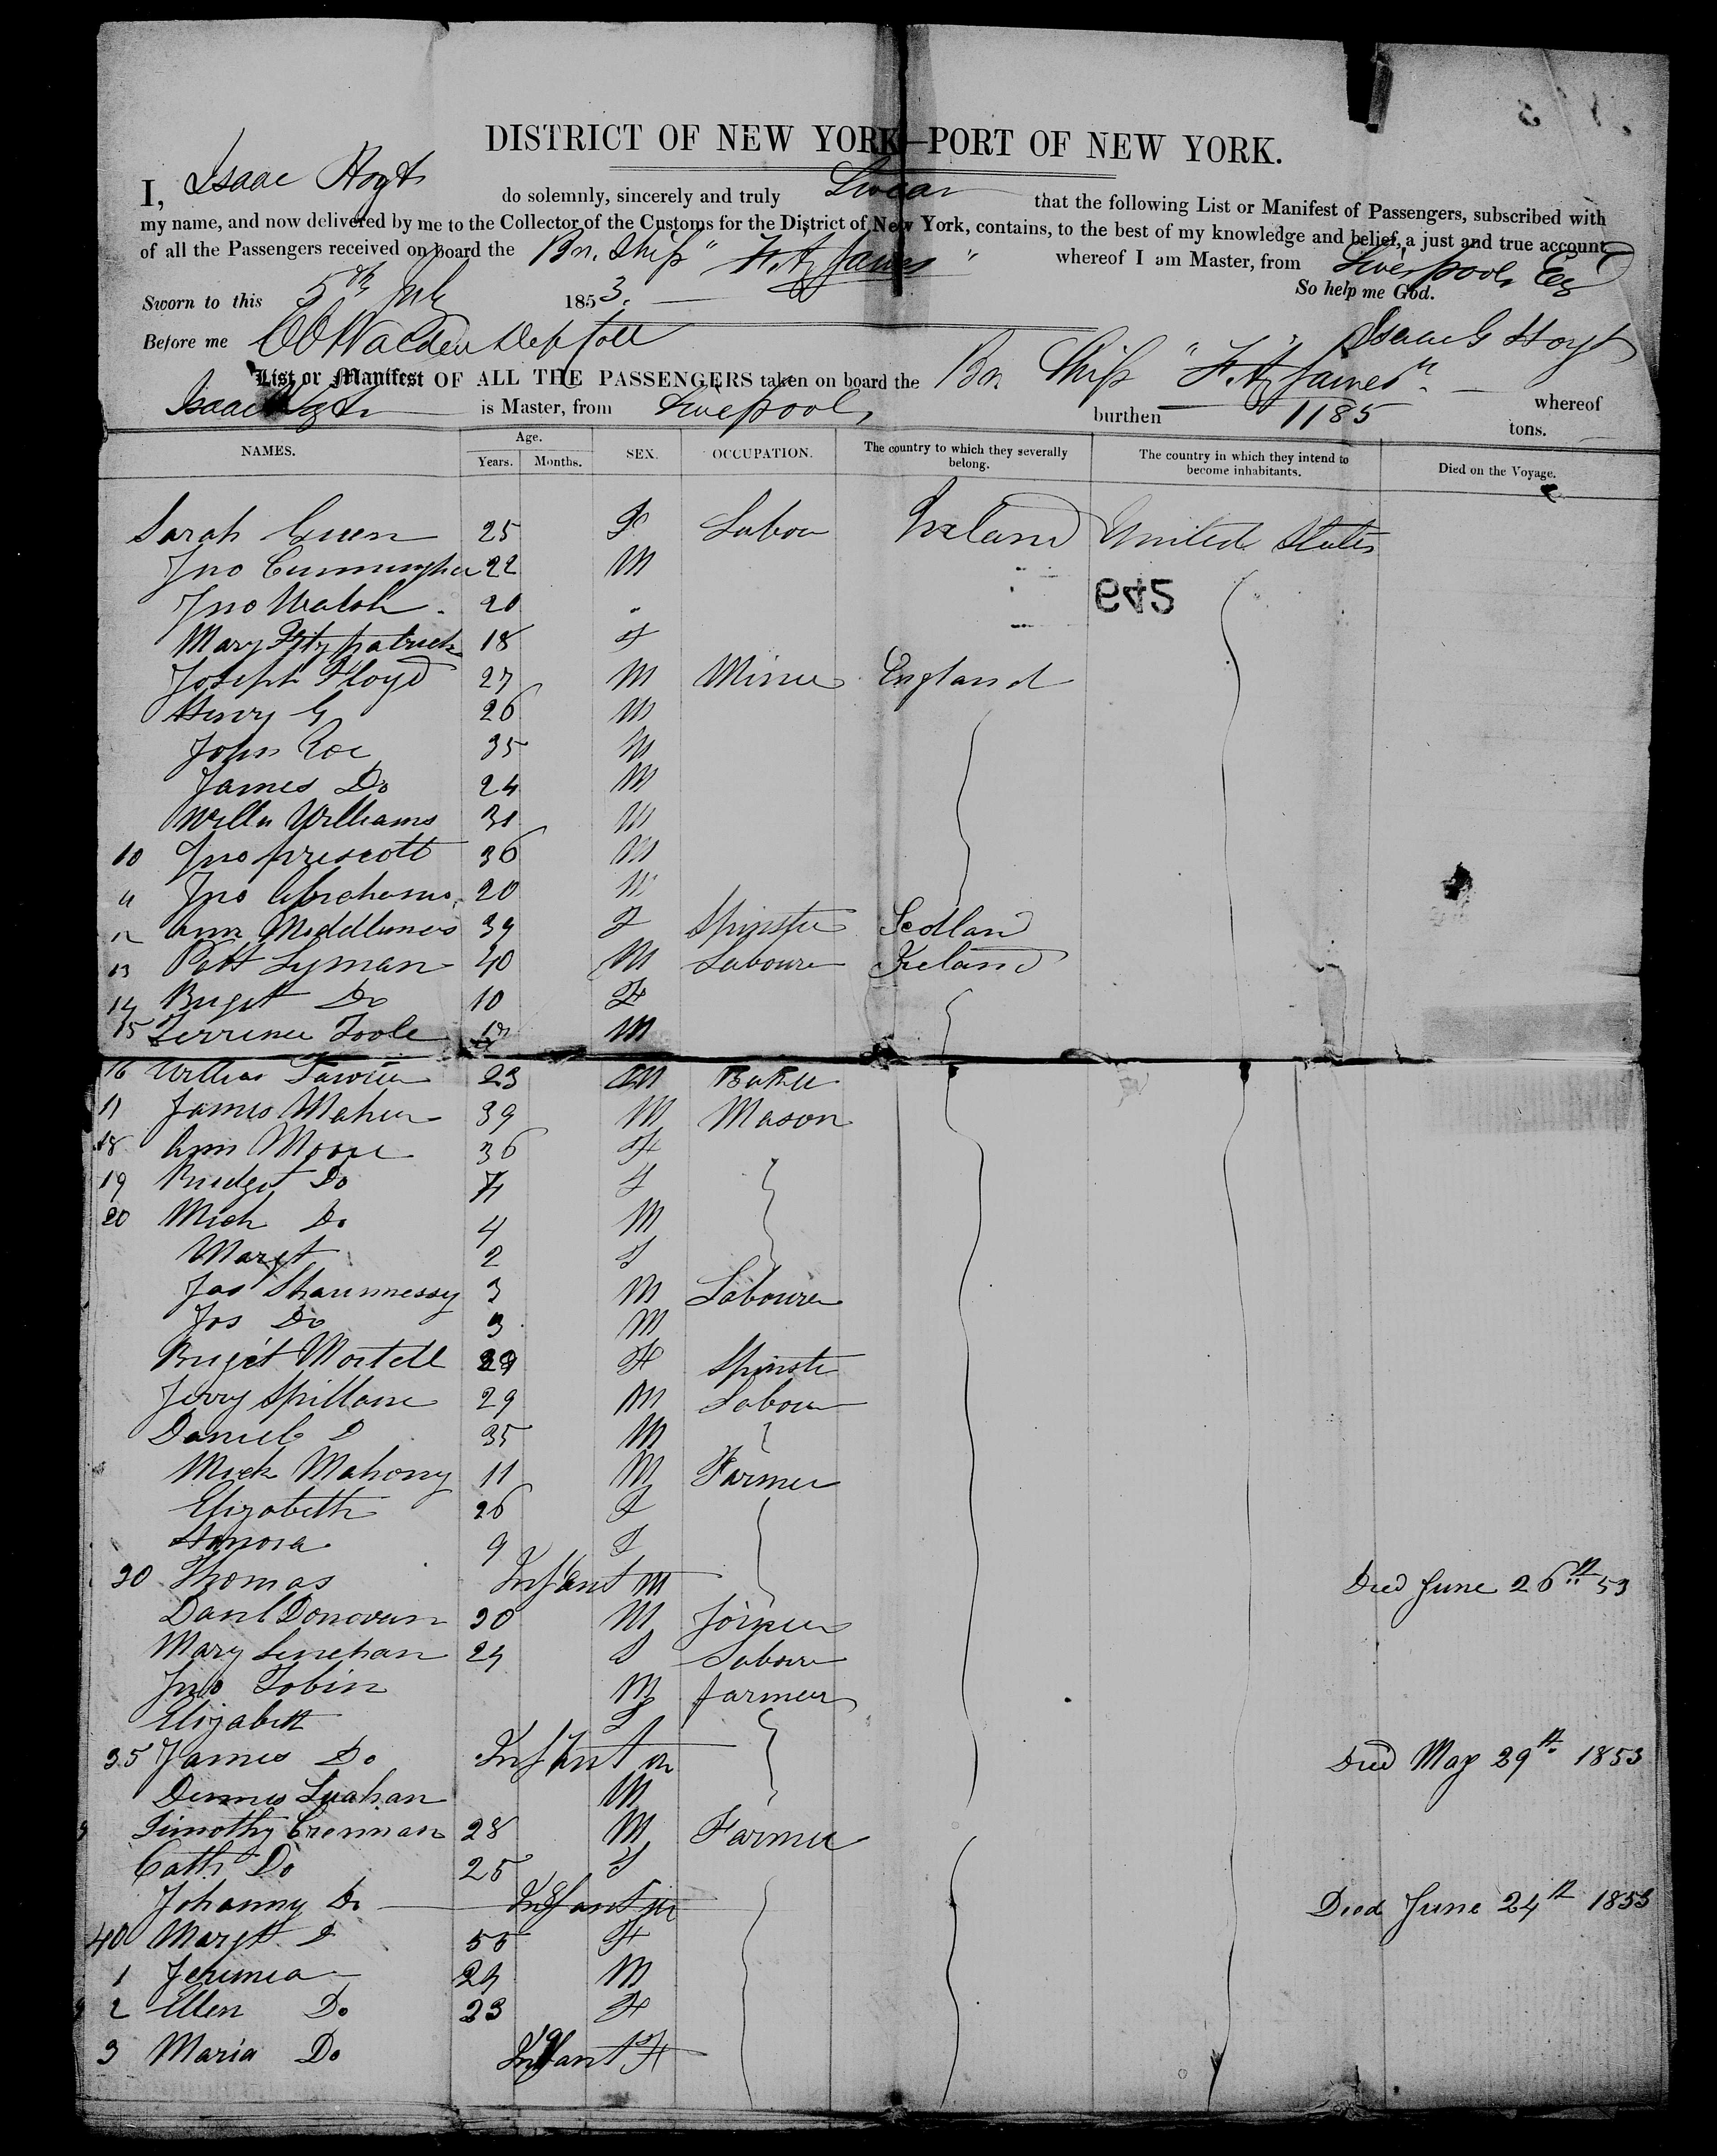 DISTRICT OF NEW YORK—PORT OF NEW YORK.
I, Isaac Hoyt do solemnly, sincerely and truly Swear that the following List or Manifest of Passengers, subscribed with
my name, and now delivered by me to the Collector of the Customs for the District of New York, contains, to the best of my knowledge and belief, a just and true account
of all the Passengers received on board the Br. Ship "Fitz James" whereof I am Master, from Liverpool,
So help me God.
Sworn to this 5th July 1853.
Before me Isaac G Hoyt
List or Manifest OF ALL THE PASSENGERS taken on board the Br. Ship "Fitz James" whereof
Isaac Hoyt is Master, from Liverpool, burthen 1185 tons.
NAMES. Age. Years. Months. SEX. OCCUPATION. The country to which they severally belong. The country in which they intend to become inhabitants. Died on the Voyage.
Sarah 25 F Labou Ireland United States
Jno 22 M
Jno Walsh 20 "
Mary Fitzpatrick 18 F
Joseph Floyd 27 M Miner England
Henry 26 M
John Roe 35 M
James Do 24 M
Willm Williams 31 M
10 Jno Prescott 36 M
11 Jno Abrahams 20 M
12 Ann 39 F Spinster Scotland
13 Lyman 40 M Laboure Ireland
14 Do 10 F
15 Terrence Toole M
16 23 M
17 James Maher 39 M Mason
18 Ann Moore 36 F
19 Bridget Do 7 F
20 Mich Do 4 M
Margt 2 F
Jas Shaunnessy 3 M Laboure
Jos Do 3 M
F Spinste
Jerry Spillane 29 M Labour
Daniel D 35 M
Mick Mahony 11 M Farmer
Elizabeth 26 F
Honora 9 F
30 Thomas Infant M Died June 26th 53
Danl Donovan 30 M Joiner
Mary Linehan 24 F Laboure
Jno Tobin M farmer
Elizabeth F
35 James Do Infant m Died May 29th 1853
Dennis M
Timothy 28 M Farmer
Cath Do 25 F
Johanny Do Infant Died June 24th 1853
40 Margt D 55 F
1 Jerimia 24 M
2 Ellen Do 23 F
3 Maria Do Infant F